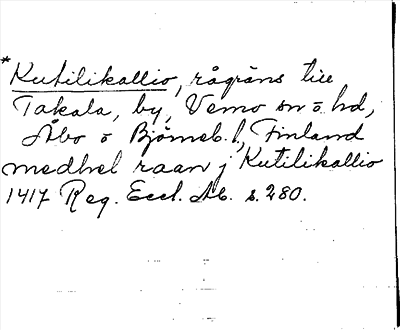 * Kutilikallio, rågräns till
Takala, by, Vemo sn o hd,
Åbo o Björneb. l, Finland
medhel raan j Kutilikallio
1417 Reg. Eccl. Ab. s. 280.